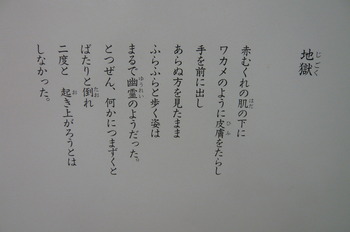 地獄
じごく
赤むくれの肌の下に
はだ
ワカメのように皮膚をたらし
ひふ
手を前に出し
あらぬ方を見たまま
ふらふらと歩く姿は
まるで幽霊のようだった。
ゆうれい
とつぜん、何かにつまずくと
ばたりと倒れ
たお
二度と　起き上がろうとは
お
しなかった。